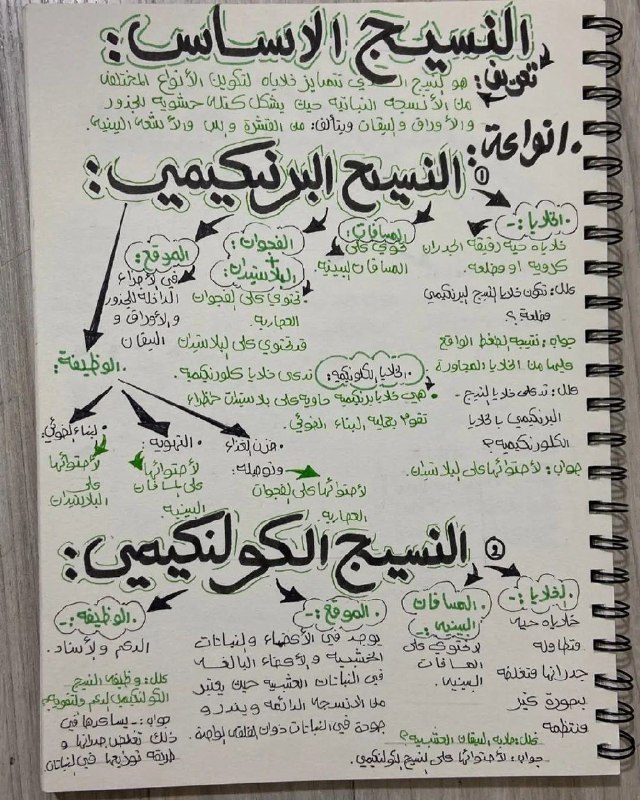 النسيج الاساس:
تعريف: هو النسيج الذي تتمايز خلاياه لتكوين الأنواع المختلفة
من الأنسجة النباتية حيث يشكل كتلة حشوية للجذور
والأوراق والسيقان ويتألف: من القشرة واللب والأشعة البينية.
انواعة:
① النسيج البرنكيمي:
الخلايا:-
خلاياه حية رقيقة الجدران
كروية او مضلعة.
علل: تكون خلايا النسيج البرنكيمي
مضلعة؟
جواب: نتيجة الضغط الواقع
عليها من الخلايا المجاورة
علل: تدعى خلايا النسيج -
البرنكيمي بالخلايا
الكلورنكيمية؟
جواب: لأحتوائها على البلاستيدات.
المسافات:
تحوي على
المسافات البينية.
الفجوات:
+
البلاستيدات:
تحتوي على الفجوات
العصارية.
قد تحتوي على البلاستيدات
تدعى خلايا كلورنكيمية.
الخلايا الكلورنكيمية:
هي خلايا برنكيمية حاوية على بلاستيدات خضراء
تقوم بعملية البناء الضوئي.
الموقع:
في الأجزاء
الداخلة الجذور
والأوراق و
السيقان
الوظيفة:
خزن الغذاء
وتوصيله:
لأحتوائها على الفجوات
العصارية
التهوية:
لأحتوائها
على مسافات
البينية
البناء الضوئي:
لأحتوائها
على
البلاستيدات
② النسيج الكولنكيمي:
الخلايا:-
خلاياه حية
متطاولة
جدرانها متغلظة
بصورة غير
منتظمة
المسافات
البينية:-
لا تحتوي على
المسافات
البينية.
علل: صلابة السيقان العشبية؟
جواب: لأحتوائها على النسيج الكولنكيمي.
الموقع:-
يوجد في الأعضاء والنباتات
الخشبية والأعضاء البالغة
في النباتات العشبية حيث يعتبر
من الأنسجة الدائمة ويندر و
جودة في النباتات ذوات الفلقة الواحدة.
الوظيفة:-
الدعم والأسناد.
علل: وظيفة النسيج
الكولنكيمي الدعم والتقوية؟
جواب:- يساعدها في
ذلك تغلض جدرانها و
طريقة توزيعها في النباتات